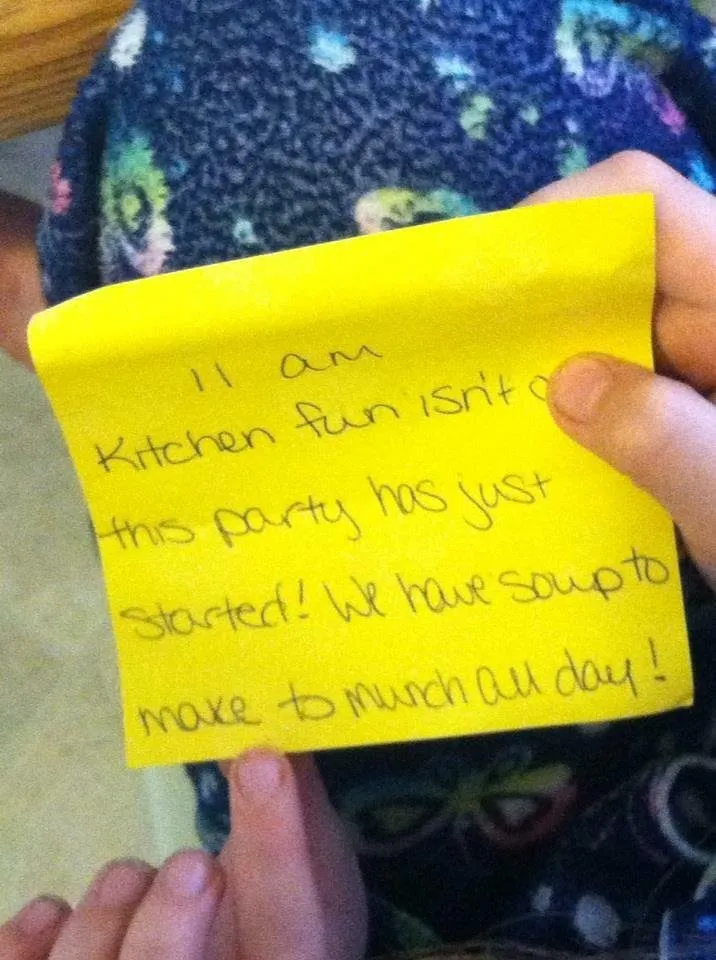 11 am
Kitchen fun isn't
this party has just
started! We have soup to
make to munch all day!